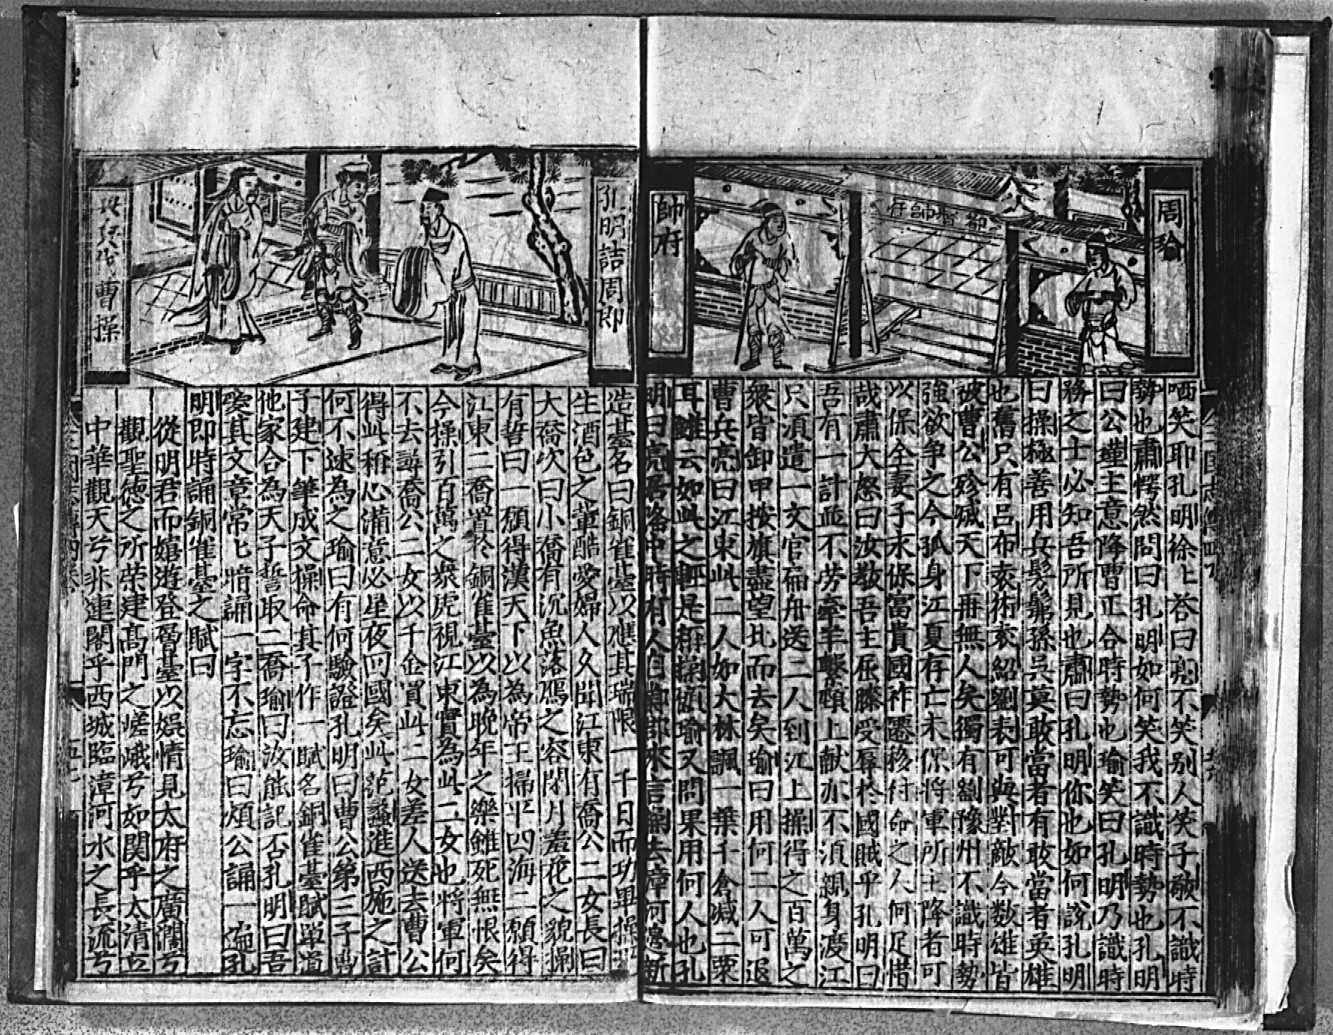 周瑜
帥府
都督帥府
哂笑耶孔明徐上答曰亮不笑别人笑子敬不識時
勢也肅愕然問曰孔明如何笑我不識時勢也孔明
曰公瑾主意降曹正合時勢也瑜笑曰孔明乃識時
務之士必知吾所見也肅曰孔明你也如何說孔明
曰操極善用兵髣髴孫吳莫敢當者有敢當者英雄
也舊只有吕布袁術袁紹劉表可與對敵今数雄皆
被曹公殄滅天下再無人矣獨有劉豫州不識時勢
強欲争之今孤身江夏存亡未保将軍所主降者可
以保全妻子末保富貴國祚遷移付命之人何足惜
哉肅大怒曰汝敎吾主屈膝受辱於國賊乎孔明曰
吾有一計並不劳牽羊繫頸上献亦不湏親身渡江
只湏遣一文官扁舟送二人到江上操得之百萬之
衆皆卸甲按旗盡望北而去矣瑜曰用何二人可退
曹兵亮曰江東此二人如大林飄一葉千倉减二粟
耳雖云如此之輕是稱操恨瑜又問果用何人也孔
明曰亮居洛中時有人自鄴郡來言操去漳河邊新
孔明詰周郎
曹操
造臺名曰銅雀臺以應其瑞限一千日而功畢操
生酒色之輩酷愛婦人久聞江東有喬公二女長曰
大喬次曰小喬有沉魚落鴈之容閉月羞花之貌操
有誓曰一願得漢天下以為帝王掃平四海二願得
江東二喬置於銅雀臺以為晚年之樂雖死無恨矣
今操引百萬之衆虎視江東實為此二女也将軍何
不去諄喬公二女以千金買此二女差人送去曹公
得此稱心滿意必星夜回國矣此范蠡進西施之計
何不速為之瑜曰有何驗證孔明曰曹公第三子曹
子建下筆成文操命其子作一賦名銅雀臺賦單道
他家合為天子誓取二喬瑜曰汝能記否孔明曰吾
愛其文章常七暗誦一字不忘瑜曰煩公誦一遍孔
明即時誦銅雀臺之賦曰
從明君而嬉遊登層臺以娛情見太府之廣闊兮
觀聖德之所荣建髙門之嵯峨兮如関乎太清立
中華觀天兮兆連閣乎西城臨漳河水之長流兮